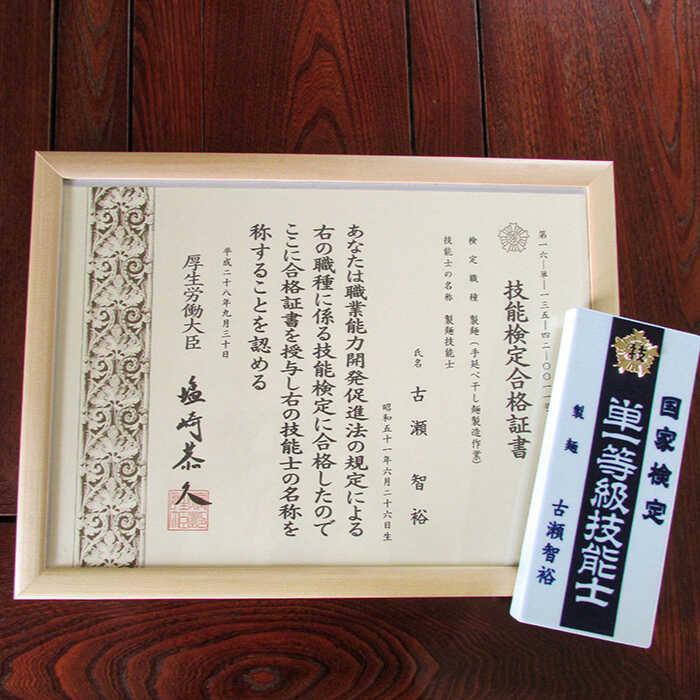 第一六ー単ー一三五ー四二ー〇〇一一号
技能検定合格証書
検定職種 製麺(手延べ干し麺製造作業)
技能士の名称 製麺技能士
氏名 古瀬智裕
昭和五十一年六月二十六日生
あなたは職業能力開発促進法の規定による
右の職種に係る技能検定に合格したので
ここに合格証書を授与し右の技能士の名称を
称することを認める
平成二十八年九月三十日
厚生労働大臣 塩崎恭久
技
国家検定
単一等級技能士
製麺 古瀬智裕